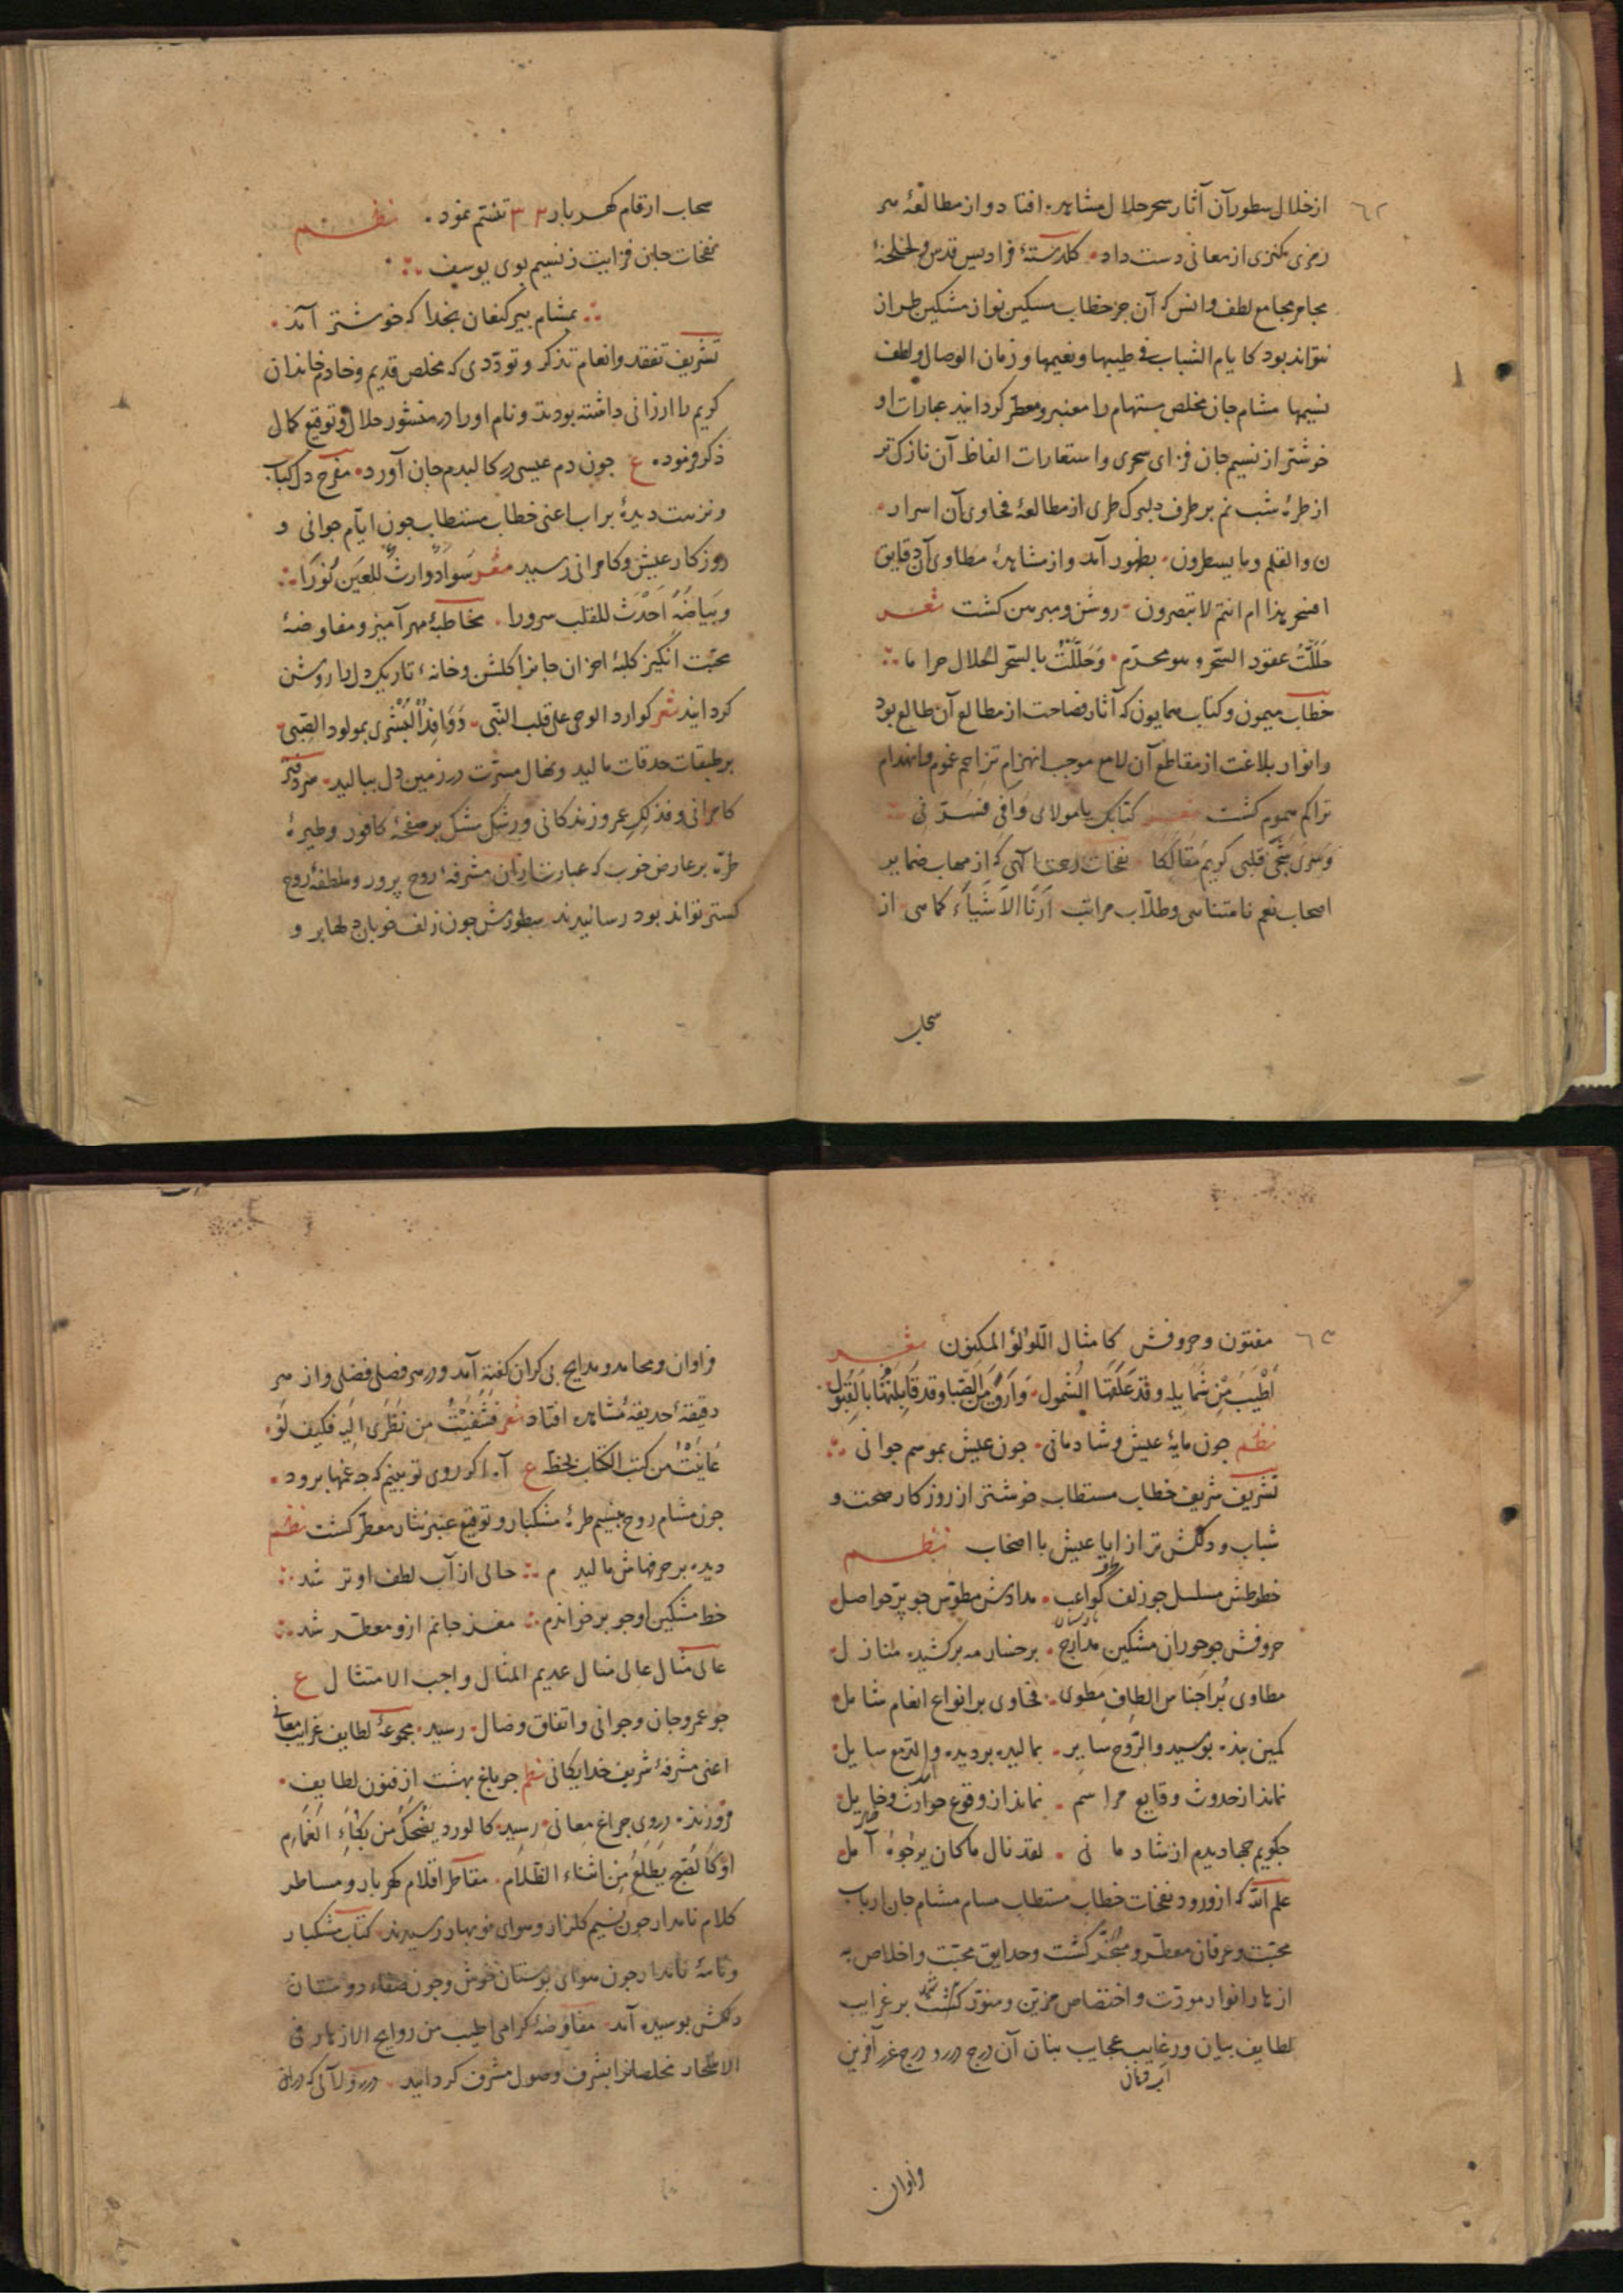 ٦٢
از خلال سطور آن آثار سحر حلال مشاهده افتاد و از مطالعهٔ هر
رمزی کنزی از معانی دست داد. کلدستهٔ فرادیس قدس و لخلخهٔ
مجامر مجامع لطف و انس که آن جز خطاب مسکین نواز مشکین طراز
نتواند بود کایام الشباب فی طیبها و نعیمها و زمان الوصال و لطف
نسیمها مشام جان مخلص مستهام را معنبر و معطر کردانید عبارات او
خوشتر از نسیم جان فزای سحری و استعارات الفاظ آن نازک تر
از طرهٔ شب نم بر طرف دلبرک طری از مطالعهٔ فحاوی آن اسرار
ن والقلم وما یسطرون. بظهور آمد و از مشاهدهٔ مطاوی آن دقایق
افسحر هذا ام انتم لا تبصرون. روشن و مبرهن کشت شعر
حَلَلْتُ عقود السّحر و هو محرّم. وَحَلَّلْتُ بالسّحر الحلال حراما
خطاب میمون و کتاب همایون که آثار فصاحت از مطالع آن طالع بود
و انوار بلاغت از مقاطع آن لامع موجب انهزام تزاحم غموم و انهدام
تراکم هموم کشت شعر کتابک یا مولای وافی فسرّنی
قلبی کریم مقالکا نفحات ریاض الهی که از مهاب ضمایر
اصحاب نعم نامتناهی و طلّاب مراتب اَرِنَا الاَشیاءَ کما هی. از
سحاب
سحاب ارقام کهربار ۳۲ تنسّم نمود. نظم
نفحات جان فزایت ز نسیم بوی یوسف
بمشام پیر کنعان بخدا که خوشتر آمد.
تشریف تفقد و انعام تذکر و تودّدی که مخلص قدیم و خادم خاندان
کریم را ارزانی داشته بودند و نام او را در منشور جلال و توقیع کمال
ذکر فرمود. ع جون دم عیسی در کالبدم جان آورد. مفرح دل کباب
و نزهت دیدهٔ پر آب اعنی خطاب مستطاب جون ایّام جوانی و
روزکار عیش و کامرانی رسید شعر سواد وارثٌ للعین نُورًا
وبیاضُهُ اَحدَثَ للقلب سرورا. مخاطبهٔ مهرآمیز و مفاوضهٔ
محبّت انکیز کلبهٔ احزان جانرا کلشن و خانهٔ تاریک دل را روشن
کردانید شعر کوارد الوحی علی قلب النّبی. وَوَافِدُ البُشرَی بمولود الصّبی.
بر طبقات حدقات مالید و نهال مسرّت در زمین دل ببالید. سردفتر
کامرانی و فذلک عمر و زندکانی و رشک مشک بر صفحهٔ کافور و طیرهٔ
طرّه بر عارض خوب که عبارت از آن مشرفهٔ روح پرور و ملطفهٔ روح
کستر تواند بود رسانیدند سطورش جون زلف خوبان و
٦٣
مفتون و حروفش کامثال اللّؤلؤ المکنون شعر
اَطْیَبَ مِن شمایله وقد عَلَّهَا الشَّمول. وَاَرَقَّ مِنَ الصّبا وقد قَابَلَتْهَا بالقبول.
نظم جون مایهٔ عیش و شادمانی. جون عیش بموسم جوانی
تشریف شریف خطاب مستطاب خوشتر از روزکار صحت و
شباب و دلکش تر از ایام عیش با اصحاب نظم
خطوطش مسلسل جو زلف کواعب. مدادش مطوّس جو پرّ حواصل
حروفش جو حوران مشکین مدارج. بر خسار مه برکشیده منازل
مطاوی پر اجناس الطاف مطوی. فحاوی بر انواع انعام شامل
کمین بنده بوسید والرّوح سایر. بمالید بر دیده والدّمع سایل
نماند از حدوث وقایع مراسم. نماند از وقوع حوادث
جکویم جها دیدم از شادمانی. لقد نال ما کان یرجوه آمل
علم الله که از ورود نفحات خطاب مستطاب مسام مشام جان ارباب
محبّت و عرفان معطّر و مبخّر کشت و حدایق محبّت و اخلاص به
ازهار انوار مودّت و اختصاص مزیّن و منوّر کشت بر غرایب
لطایف بیان و رغایب عجایب بنان آن درج درر و درج غرر آفرین
فراوان
فراوان و محامد و مدایح بی کران کفته آمد و در هر فضلی فصلی و از هر
دقیقه حدیقهٔ مشاهده افتاد شعر فَشُفِیْتُ من نَظَری الیه فکیف لَوْ.
عاینتُ من کتب الکتاب بلحظ ع آه اکر روی تو بینم که جه غمها برود.
جون مشام روح بنسیم طرهٔ مشکبار و توقیع عنبر نثار معطّر کشت نظم
دیده بر حرفهاش مالیدم حالی از آب لطف او تر شد
خط مشکین او جو برخواندم مغز جانم ازو معطّر شد
عالی مثال عالی منال عدیم المثال واجب الامتثال ع
جو عمر و جان و جوانی و اتفاق وصال. رسید. مجموعهٔ لطایف غرایب معانی
اعنی مشرفهٔ شریف خدایکانی نظم جو باغ بهشت از فنون لطایف.
فروزنده در وی جراغ معانی. رسید. کالورد یضحکُ من بکاء الغمایم
اَو کالصّبح یطلعُ مِن اثناء الظّلام. مقاطر اقلام کهربار و مساطر
کلام نامدار جون نسیم کلزار و هوای نوبهار رسیدند. کتاب مشکبار
و نامهٔ نامدار جون هوای بوستان خوش و جون صفاء دوستان
دلکش بوسیده آمد. مفاوضهٔ کرامی اطیب من روایح الازهار فی
الاسحار مخلصانرا بشرف وصول مشرف کردانید.